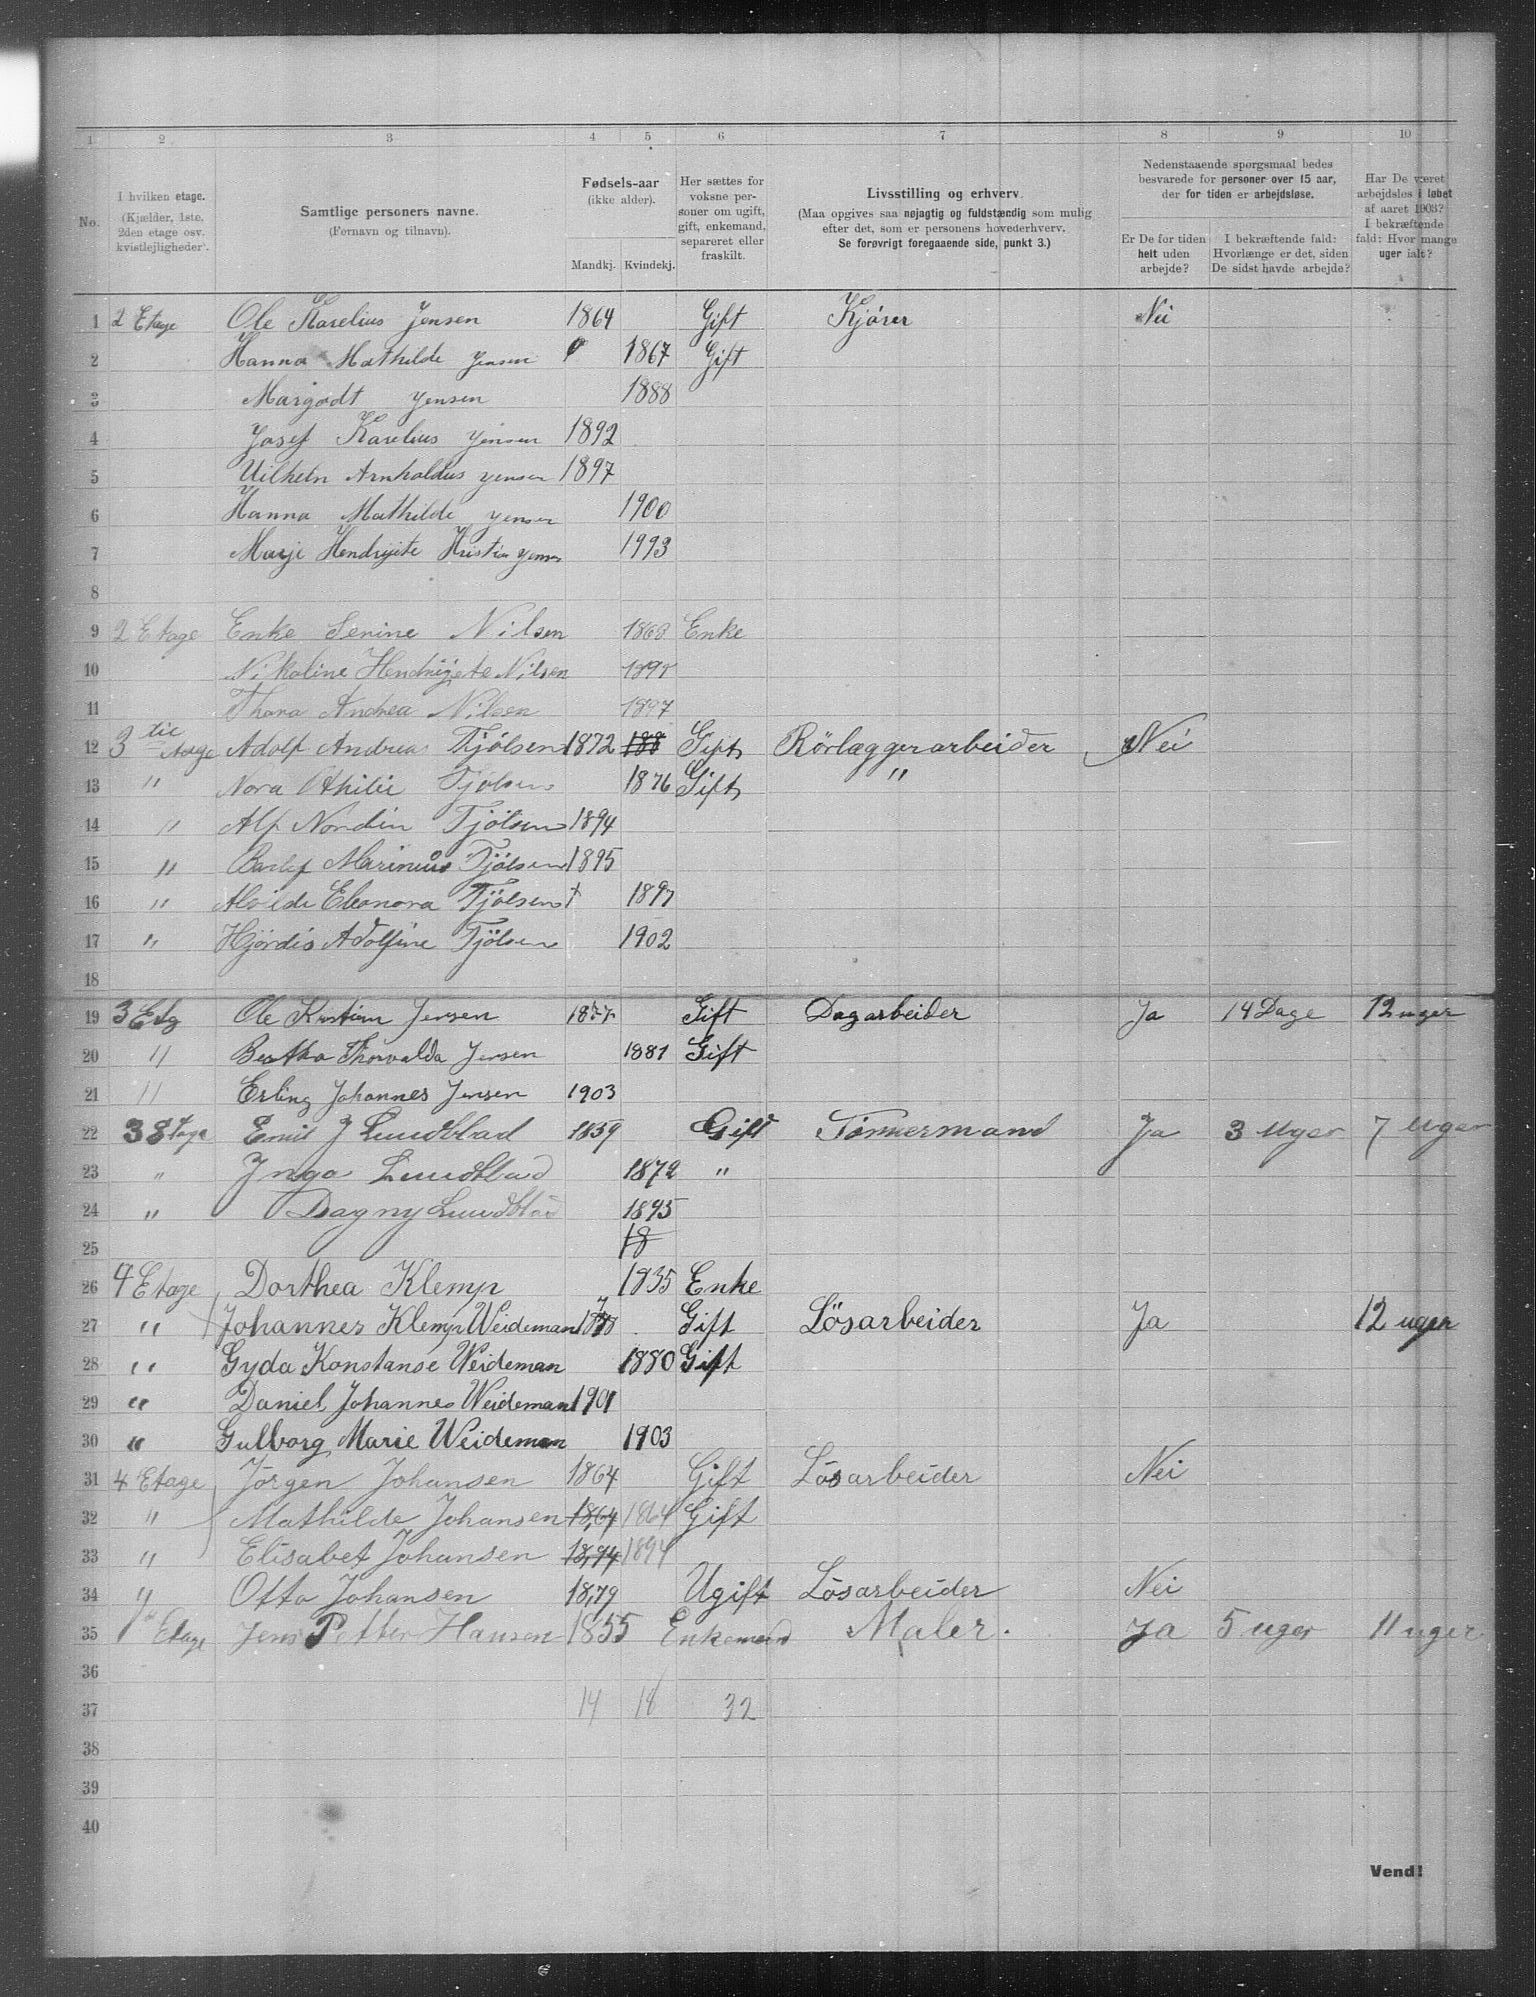 1 2 3 4 5 6 7 8 9 10
No.
I hvilken etage. (Kjælder, 1ste, 2den etage osv. kvistlejligheder).
Samtlige personers navne. (Fornavn og tilnavn).
Fødsels-aar (ikke alder). Mandkj. Kvindekj.
Her sættes for voksne personer om ugift, gift, enkemand, separeret eller fraskilt.
Livsstilling og erhverv. (Maa opgives saa nøjagtig og fuldstændig som mulig efter det, som er personens hovederhverv. Se forøvrigt foregaaende side, punkt 3.)
Nedenstaaende spørgsmaal bedes besvarede for personer over 15 aar, der for tiden er arbejdsløse.
Er De for tiden helt uden arbejde?
I bekræftende fald: Hvorlænge er det, siden De sidst havde arbejde?
Har De været arbejdsløs i løbet af aaret 1903? I bekræftende fald: Hvor mange uger ialt?
1 2 Etage Ole Karelius Jensen 1864 Gift Kjörer Nei
2 Hanna Mathilde Jensen 1867 Gift
3 Margodt Jensen 1888
4 Josef Karelius Jensen 1892
5 Vilhelm Arnholdus Jensen 1897
6 Hanna Mathilde Jensen 1900
7 Marje Hendrijete Kristin Jensen 1993
8
9 2 Etage Enke Serine Nilsen 1868 Enke
10 Nikoline Hendrijete Nilsen
11 Thora Andrea Nilsen 1897
12 3 tie Adolf Andreas Tjölsen 1872 188 Gift Rörlæggerarbeider Nei
13 " Nora Othilie Tjölsen 1876 Gift "
14 " Alf Nordin Tjölsen 1894
15 " Marinius Tjölsen 1895
16 " Alvilde Eleonora Tjölsen 1897
17 " Hjördis Adolfine Tjölsen 1902
18
19 3 Etg Ole Kristian Jensen 1877 Gift Dagarbeider Ja 14 Dage 12 uger
20 " Bertha Thorvalda Jensen 1881 Gift
21 " Erling Johannes Jensen 1903
22 3 Etage Emil J Lundblad 1859 Gift Tömmermand Ja 3 Uger 7 Uger
23 " Inga Lundblad 1872 "
24 " Dagny Lundblad 1895
25 18
26 4 Etage Dorthea Klemp 1835 Enke
27 " Johannes Klemp Weideman 1878 Gift Lösarbeider Ja 12 uger
28 " Gyda Konstanse Weideman 1880 Gift
29 " Daniel Johannes Weideman 1901
30 " Gulborg Marie Weideman 1903
31 4 Etage Jörgen Johansen 1864 Gift Lösarbeider Nei
32 " Mathilde Johansen 1864 1864 Gift
33 " Elisabet Johansen 1894 1894
34 " Otto Johansen 1879 Ugift Lösarbeider Nei
35 Etage Jens Petter Hansen 1855 Enkemand Maler. Ja 5 uger 11 uger
36
37 14 18 32
38
39
40
Vend!